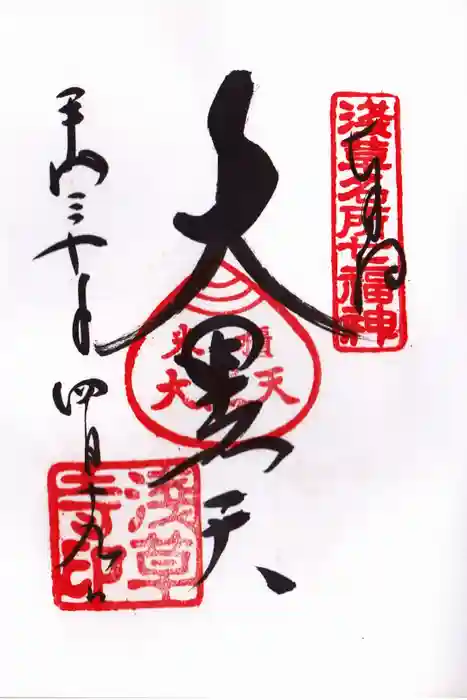 浅草名所七福神
奉拝
大黒天
米櫃
大黒天
平成三十年四月十九日
浅草寺印